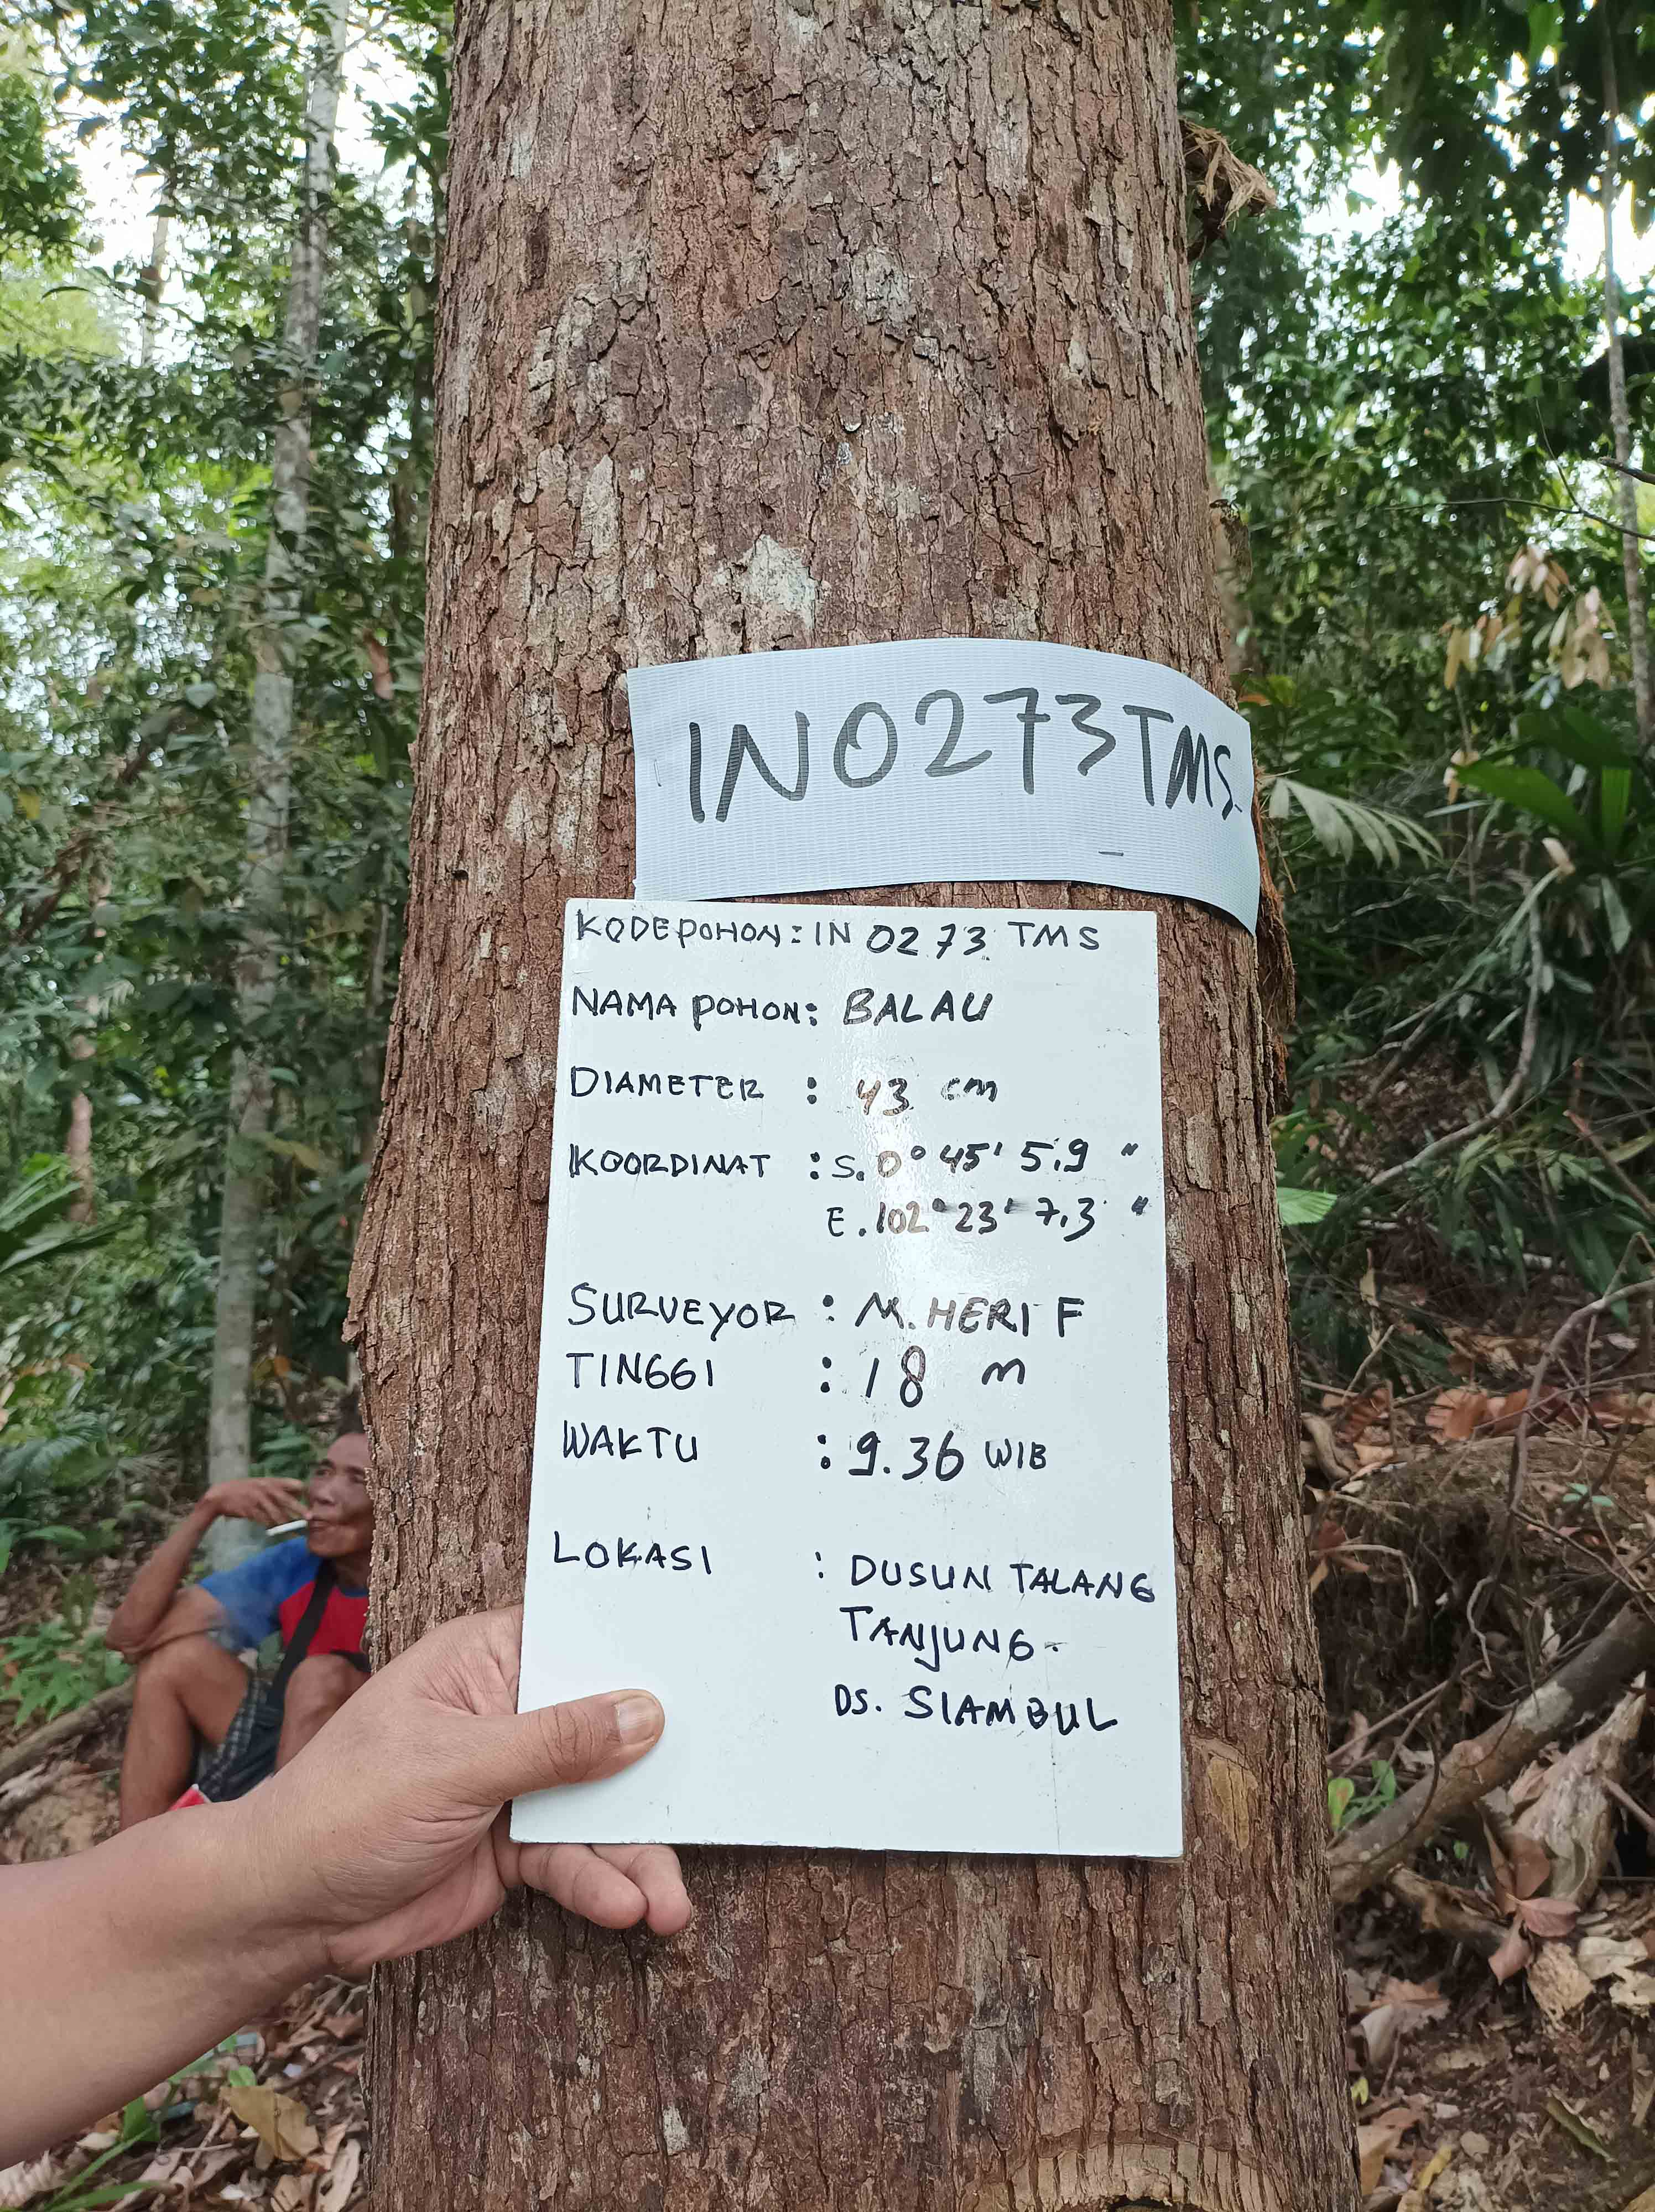 IN0273TMS
KODE POHON : IN 0273 TMS
NAMA POHON : BALAU
DIAMETER : 43 cm
KOORDINAT : S. 0° 45' 5.9 "
E. 102° 23' 7.3 "
SURVEYOR : M. HERI F
TINGGI : 18 m
WAKTU : 9.36 WIB
LOKASI : DUSUN TALANG
TANJUNG.
DS. SIAMBUL